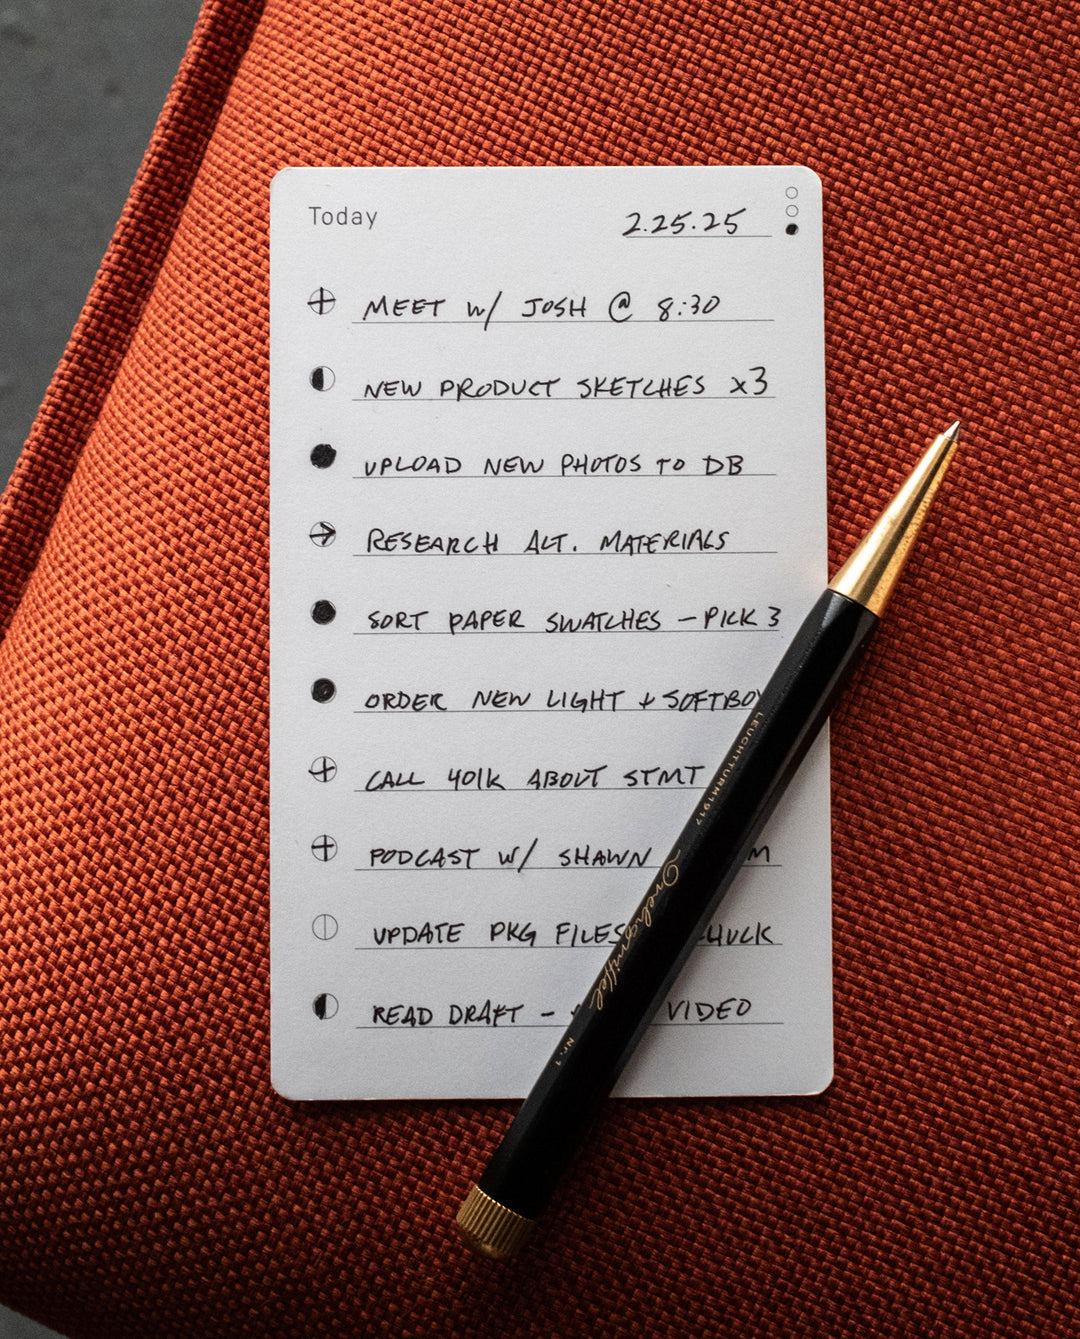 Today
2.25.25
MEET W/ JOSH @ 8:30
NEW PRODUCT SKETCHES x3
UPLOAD NEW PHOTOS TO DB
RESEARCH ALT. MATERIALS
SORT PAPER SWATCHES – PICK 3
ORDER NEW LIGHT + SOFTBO
CALL 401K ABOUT STMT
PODCAST W/ SHAWN
UPDATE PKG FILES
READ DRAFT – VIDEO
LEUCHTTURM1917
Drehgriffel
Nr. 1